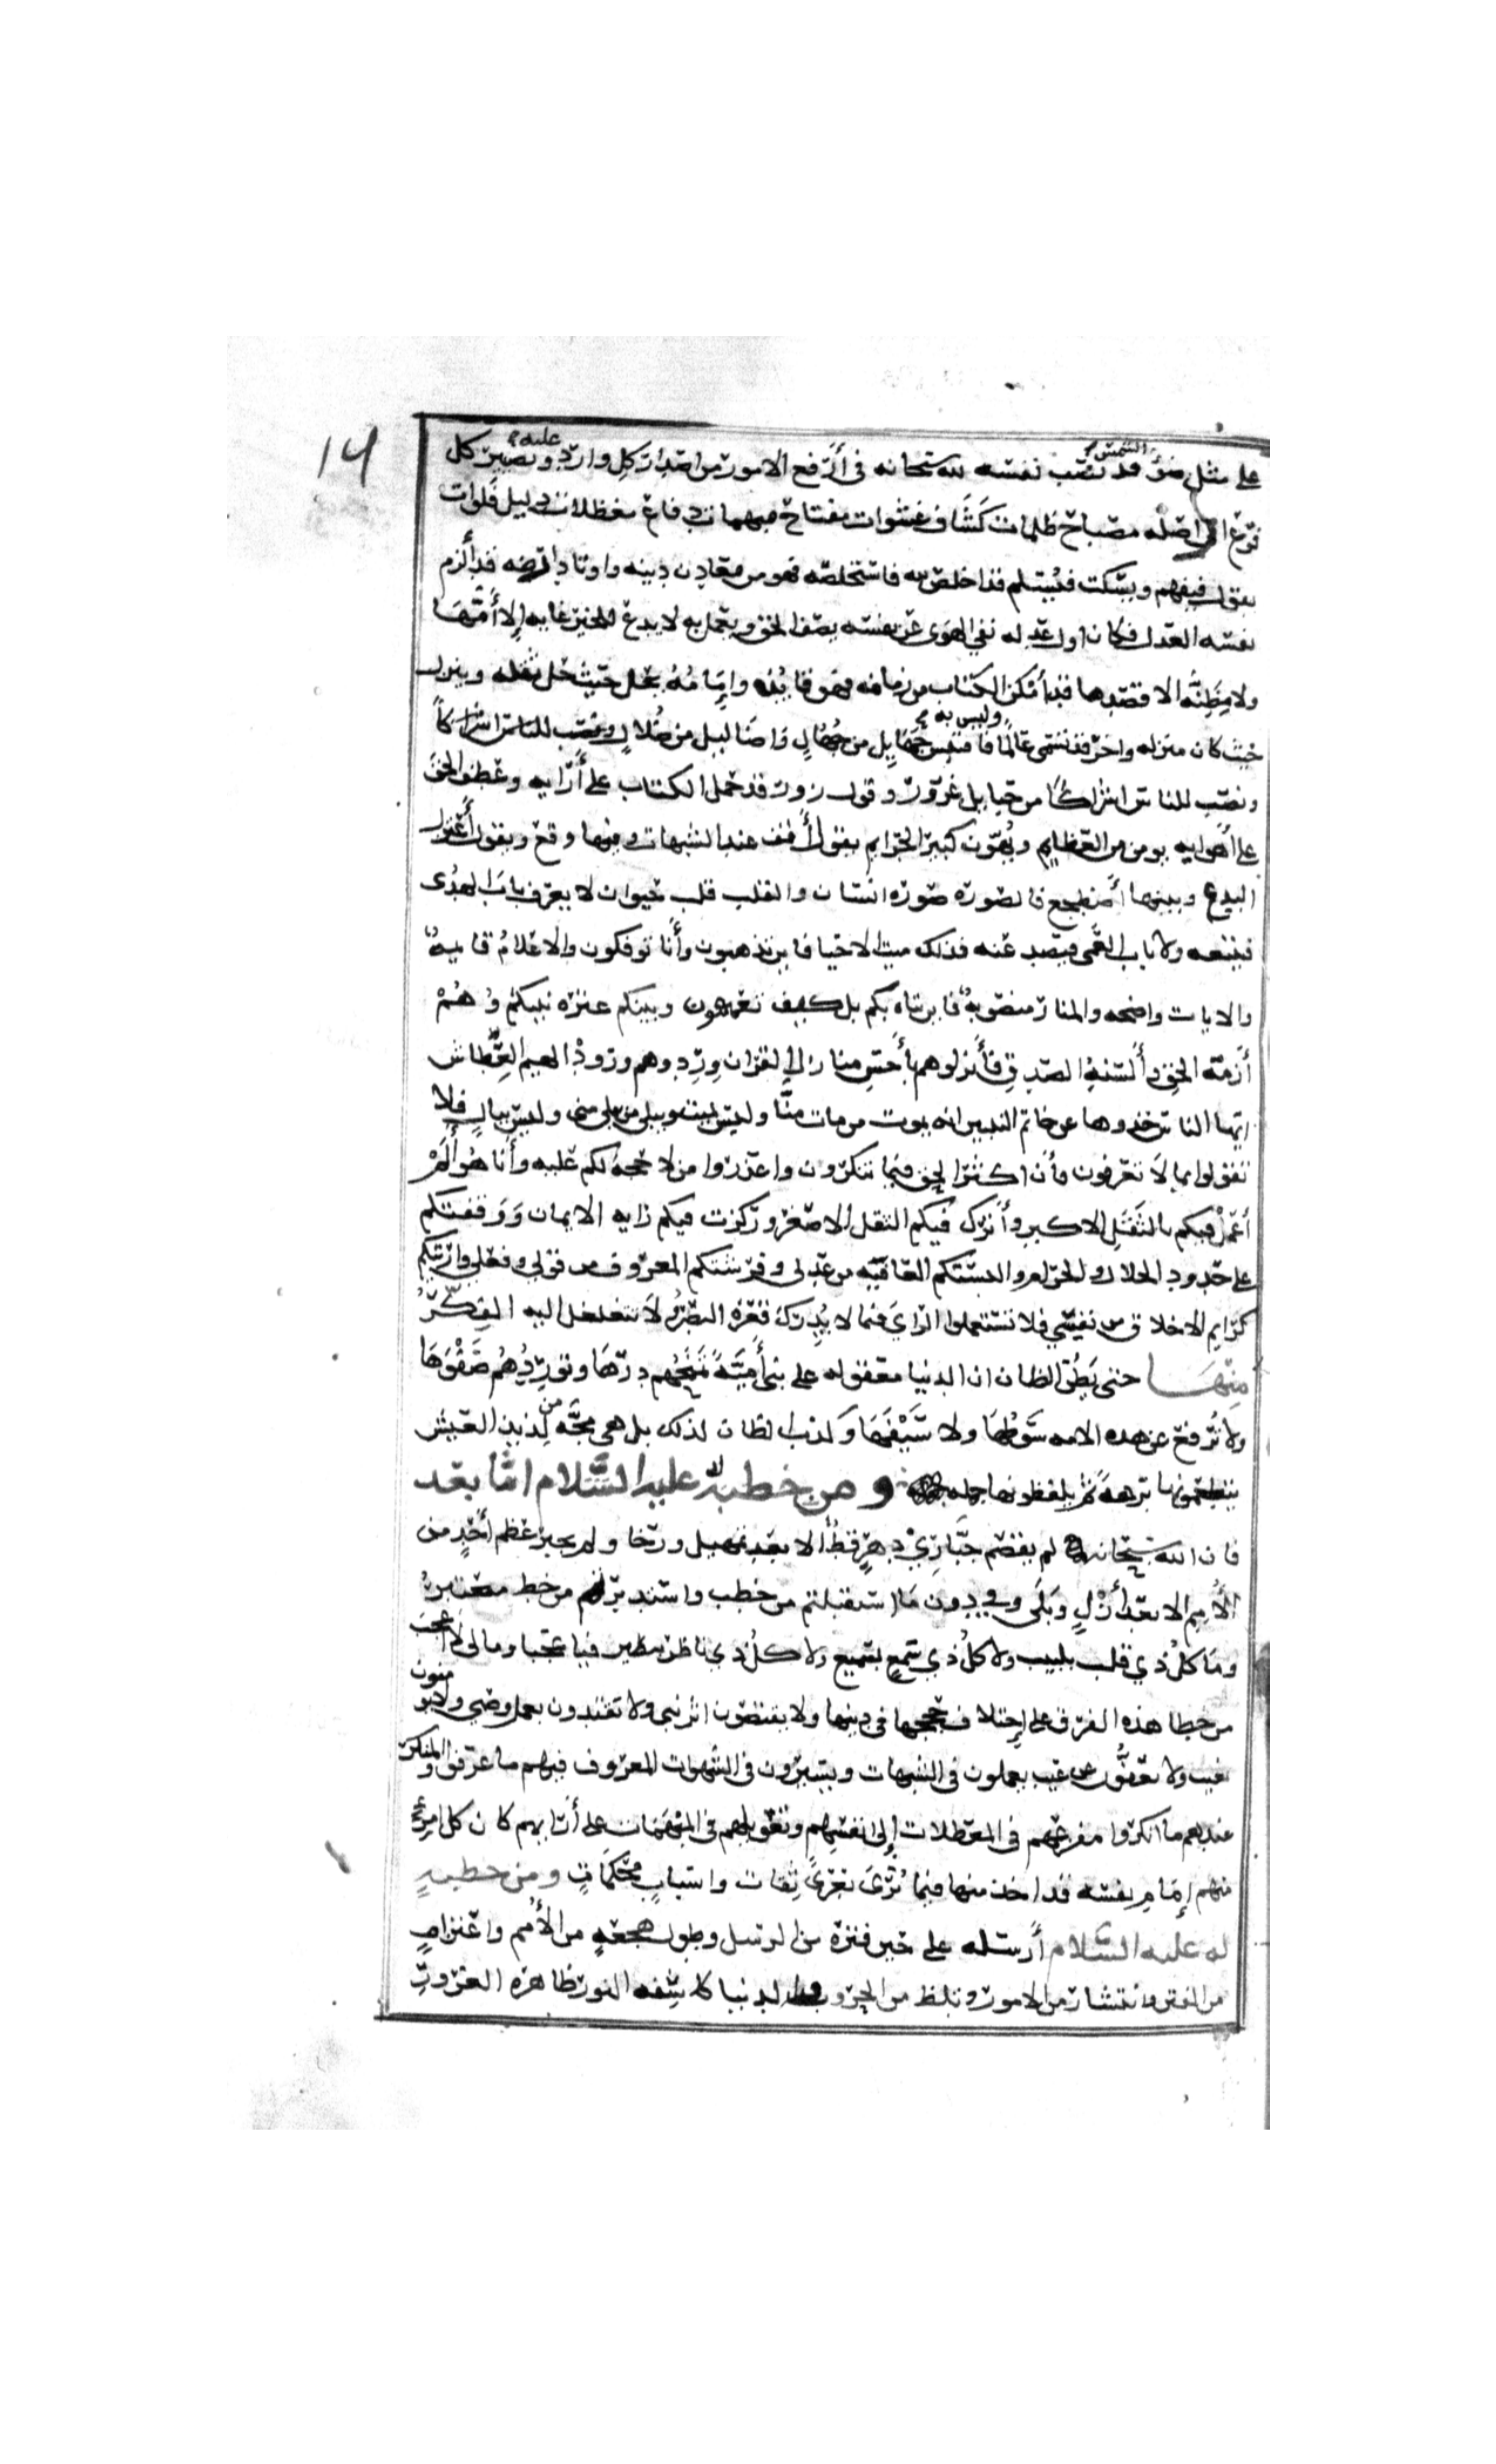 14
على مثل ضوء الشمس قد نصب نفسه لله سبحانه في أرفع الامور من اصدار كل وارد عليه وتصيير كل
فرع الى اصله مصباح ظلمات كشاف غشوات مفتاح مبهمات دفاع معظلات دليل فلوات
يقول فيفهم ويسكت فيسلم قد اخلص لله فاستخلصه فهو من معادن دينه واوتاد ارضه قد ألزم
نفسه العدل فكان اول عدله نفي الهوى عن نفسه يصف الحق ويعمل به لا يدع للخير غايه إلا أمّها
ولا مظِنّه الا قصدها قد أمكن الكتاب من زمامه فهو قايده وإمامُهُ يحل حيث حل ثقله وينزل
حيث كان منزله واخر قد تسمى عالمًا وليس به فاقتبس جهايل من جُهّالٍ واضاليل من ضُلالٍ ونصب للناس اشراكاً
ونصب للناس اشراكًا من حبايل غرور وقول زور قد حمل الكتاب على أرايه وعطف الحق
على أهوايه يومن من العظايم ويُهوّن كبير الجرايم يقول أقف عند الشبهات وفيها وقع ويقول أعتزل
البدع وبينها أضطجع فالصوره صوره انسان والقلب قلب حيوان لا يعرف باب الهدى
فيتبعه ولا باب العمى فيصد عنه فذلك ميت الاحيا فاين تذهبون وأنا توفكون والاعلامُ قايمهُ
والايات واضحه والمنار منصوبهٌ فاين تاه بكم بل كيف تعمهون وبينكم عترة نبيكم وهُمْ
أزمّة الحقِ وألسنهُ الصدقِ فأنزلوهم بأحسنِ منازل القران ورِدوهم ورودَ الهيم العِطاش
ايها الناس خذوها عن خاتم النبيين انه يموت من مات منّا وليس بميت ويبلى من بلى منى وليس ببالٍ فلا
تقولوا بما لا تعرفون فأن اكثر الحق فيما تنكرون واعذروا من لا حجه لكم عليه وأنا هُوَ ألَمْ
أعمل فيكم بالثقل الاكبر وأترك فيكم الثقل الاصغر وركزت فيكم رايه الايمان وَوَقفتكم
على حدود الحلال والحرام والبستكم العافيه من عدلى وفرشتكم المعروف من قولى وفعلى واريتكم
كرايم الاخلاق من نفسي فلا تستعملوا الرّايَ فيما لا يُدرك قعره البصَرُ ولا تتغلغل اليه الفكَرُ
منها حتى يَظُنّ الظان ان الدنيا معقوله على بني أميَّةَ تمنحُهم درّها وتورِدُهُم صَفْوَهَا
ولا تُرفع عن هذه الامه سَوْطُها ولا سَيْفُهَا وكذب الظان لذلك بل هى مجّه من لذيذ العيش
يتطعمونها برهةً ثم يلفظونها جمله ومن خطبة له عليه السّلام امّا بعد
فان الله سبحانه لم يقصم جبّارِيْ دهرٍ قطُّ الا بعد تمهيل ورخا ولم يجبر عظم أحدٍ من
الأُممِ الا بعد أزْلٍ وبَلَى وفي دون مَا استقبلتم من خطب واستدبرتم من خطب معتبرٌ
ومَا كلُ ذي قلب بلبيب ولا كلُ ذي سَمعٍ بسميع ولا كلُ ذي ناظر ببصير فيا عجبا ومالى لا اعجب
من خطا هذه الفرق على إختلاف حججها في دينها ولا يقتصون اثر نبى ولا يقتدون بعمل وصي ولا يومنون
بغيب ولا يعفون عن عيب يعملون في الشبهات ويسيرون في الشهوات المعروف فيهم ما عرفوا والمنكر
عندهم ما انكروا مفزعهم في المعظلات إلى انفسهم وتعويلهم في المبهَمَات على أرايهم كان كل امرئ
منهم إمَام نفسه قد اخذ منها فيما يُرَى بعُرىً ثِقات واسبابٍ محْكَمَاتٍ ومن خطبهٍ
له عليه السّلام أرسله على حين فتره من الرسل وطول هجعهٍ من الأمم واعتزامٍ
من الفتن وانتشار من الامور وتلظ من الحروب والدنيا كاسِفه النور ظاهره الغرورِ